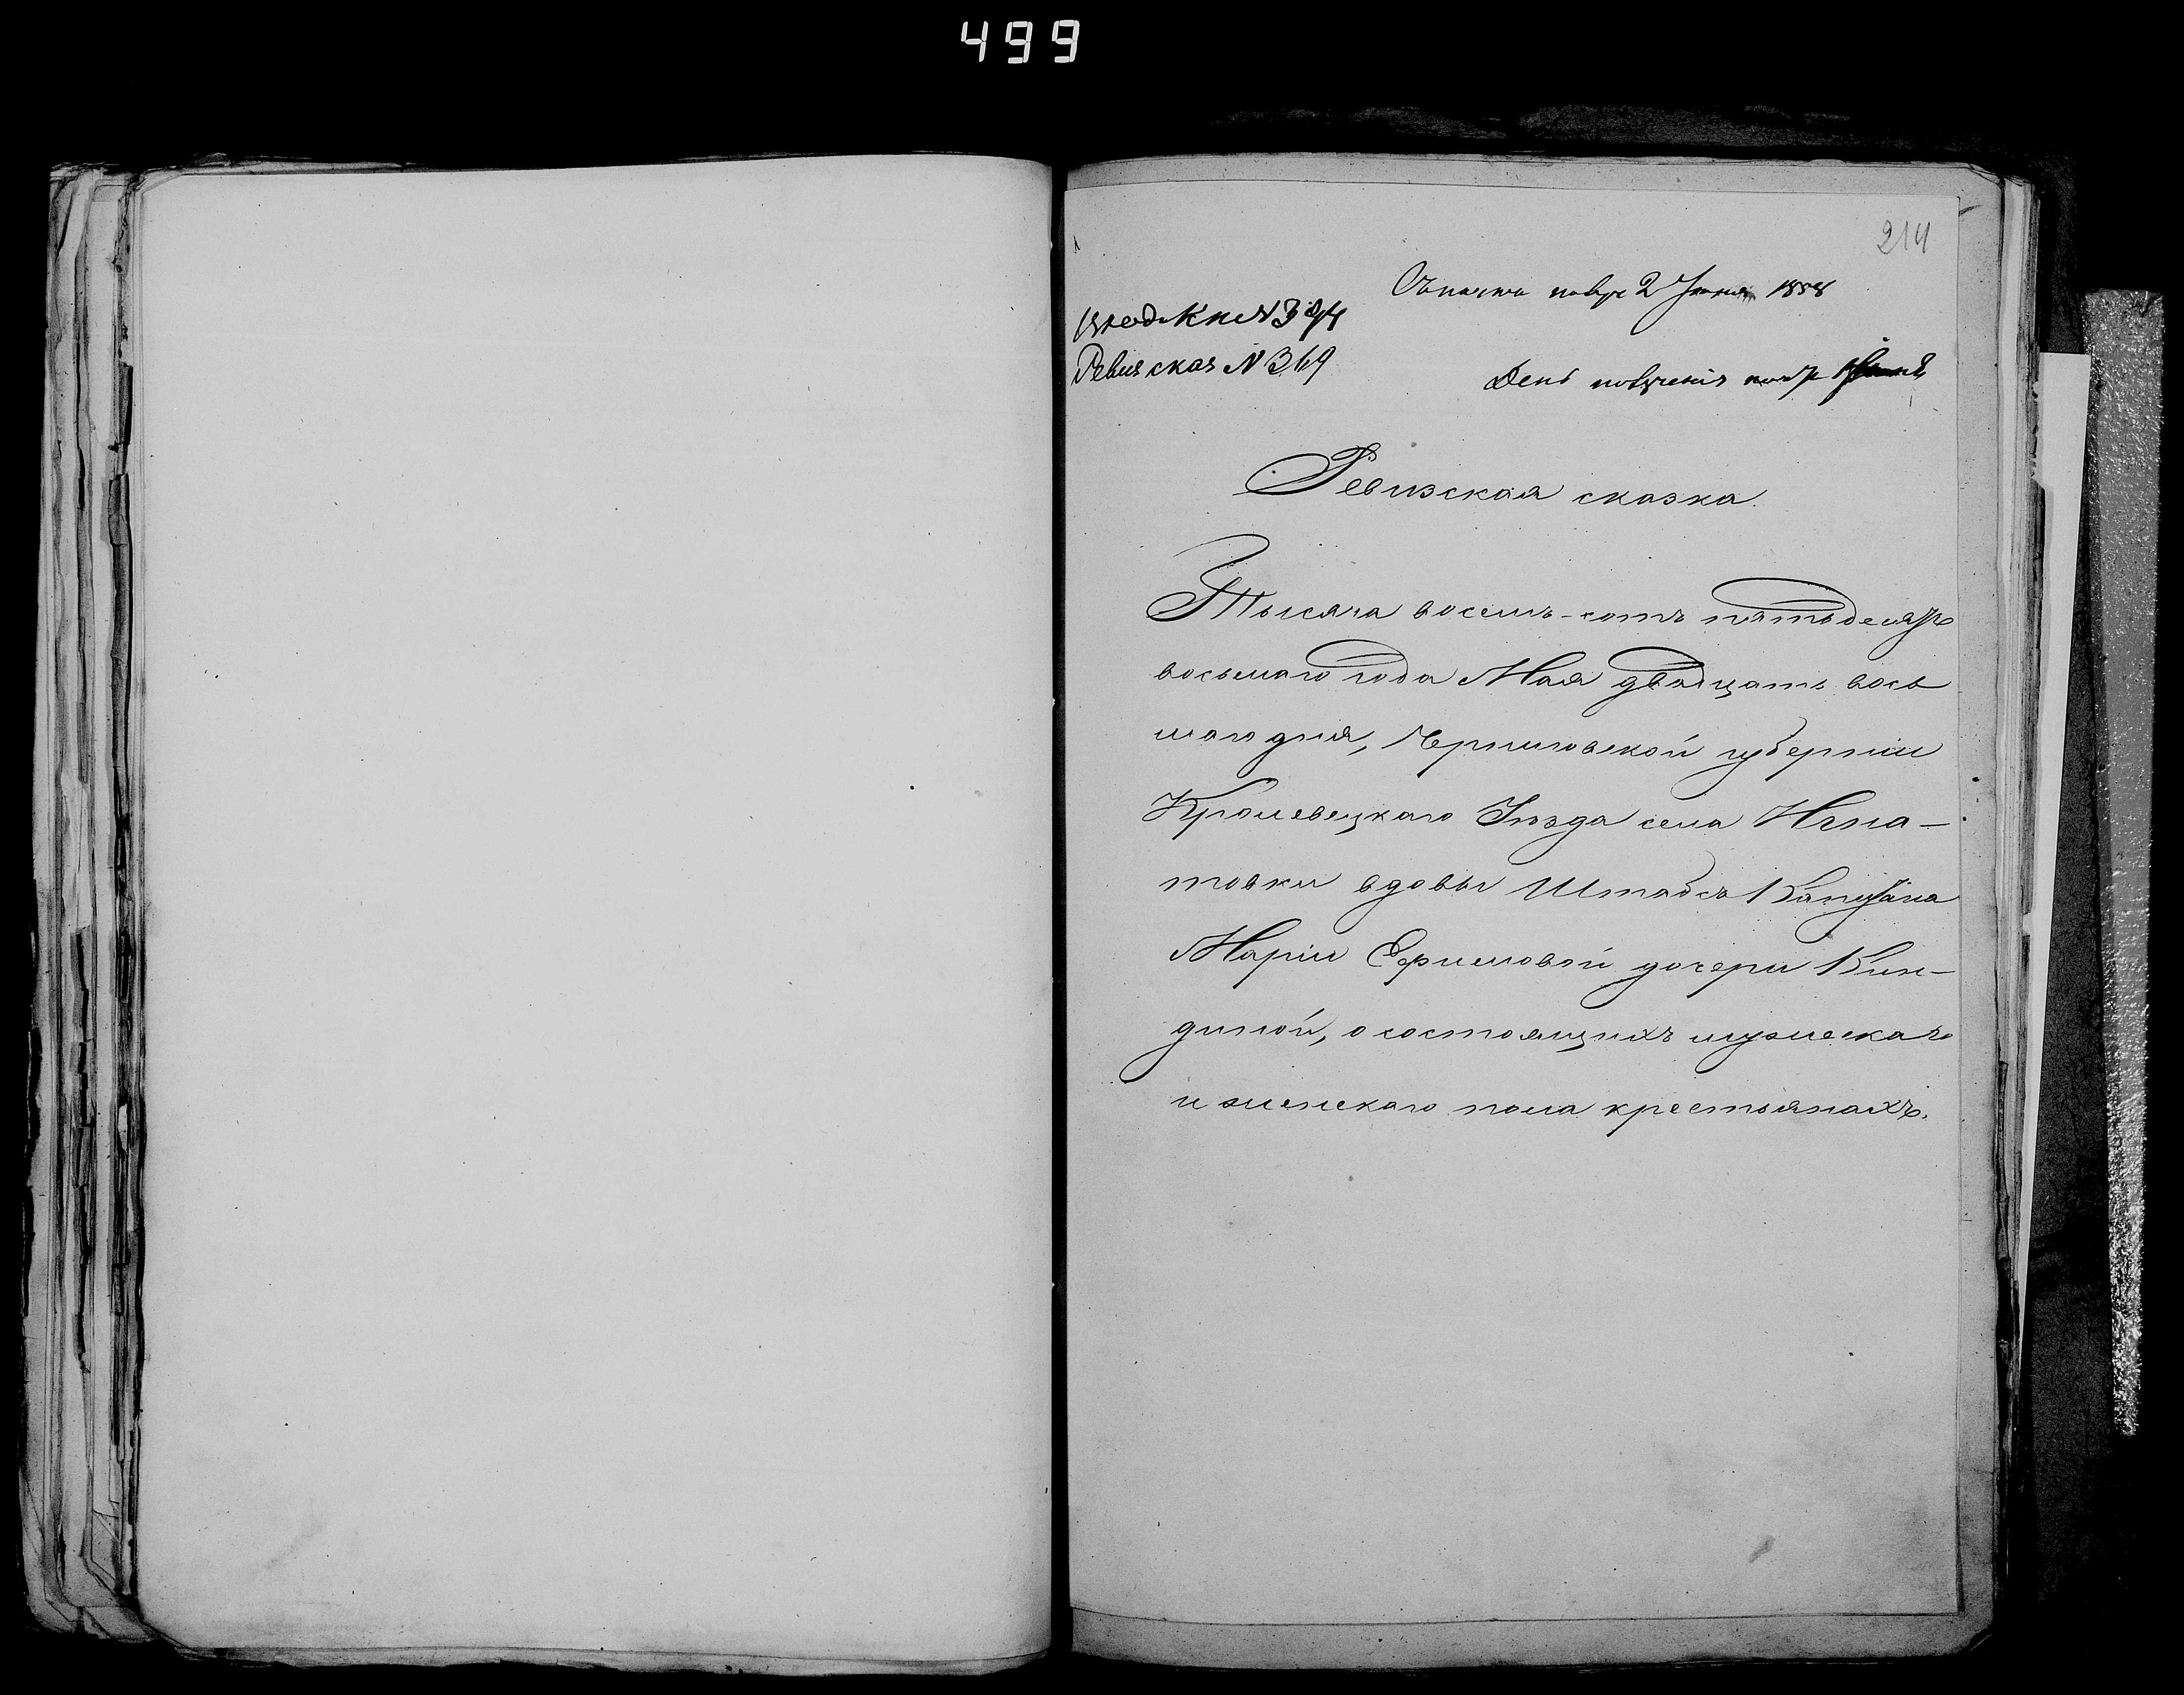 499
214
Съ почты получ 2 Іюня 1858
Вход. Кни N 394
Ревизская N 369
День получения
Ревизская сказка.
Тысяча восемь-сотъ пятьдесятъ
восьмаго года Мая двадцать вось
маго дня, Черниговской губерніи
Кролевецкаго Уѣзда села Игна-
товки вдовы Штабсъ Капитана
Маріи Ефимовой дочери Кин-
диной, о состоящихъ мужескаго
и женскаго пола крестьянахъ.